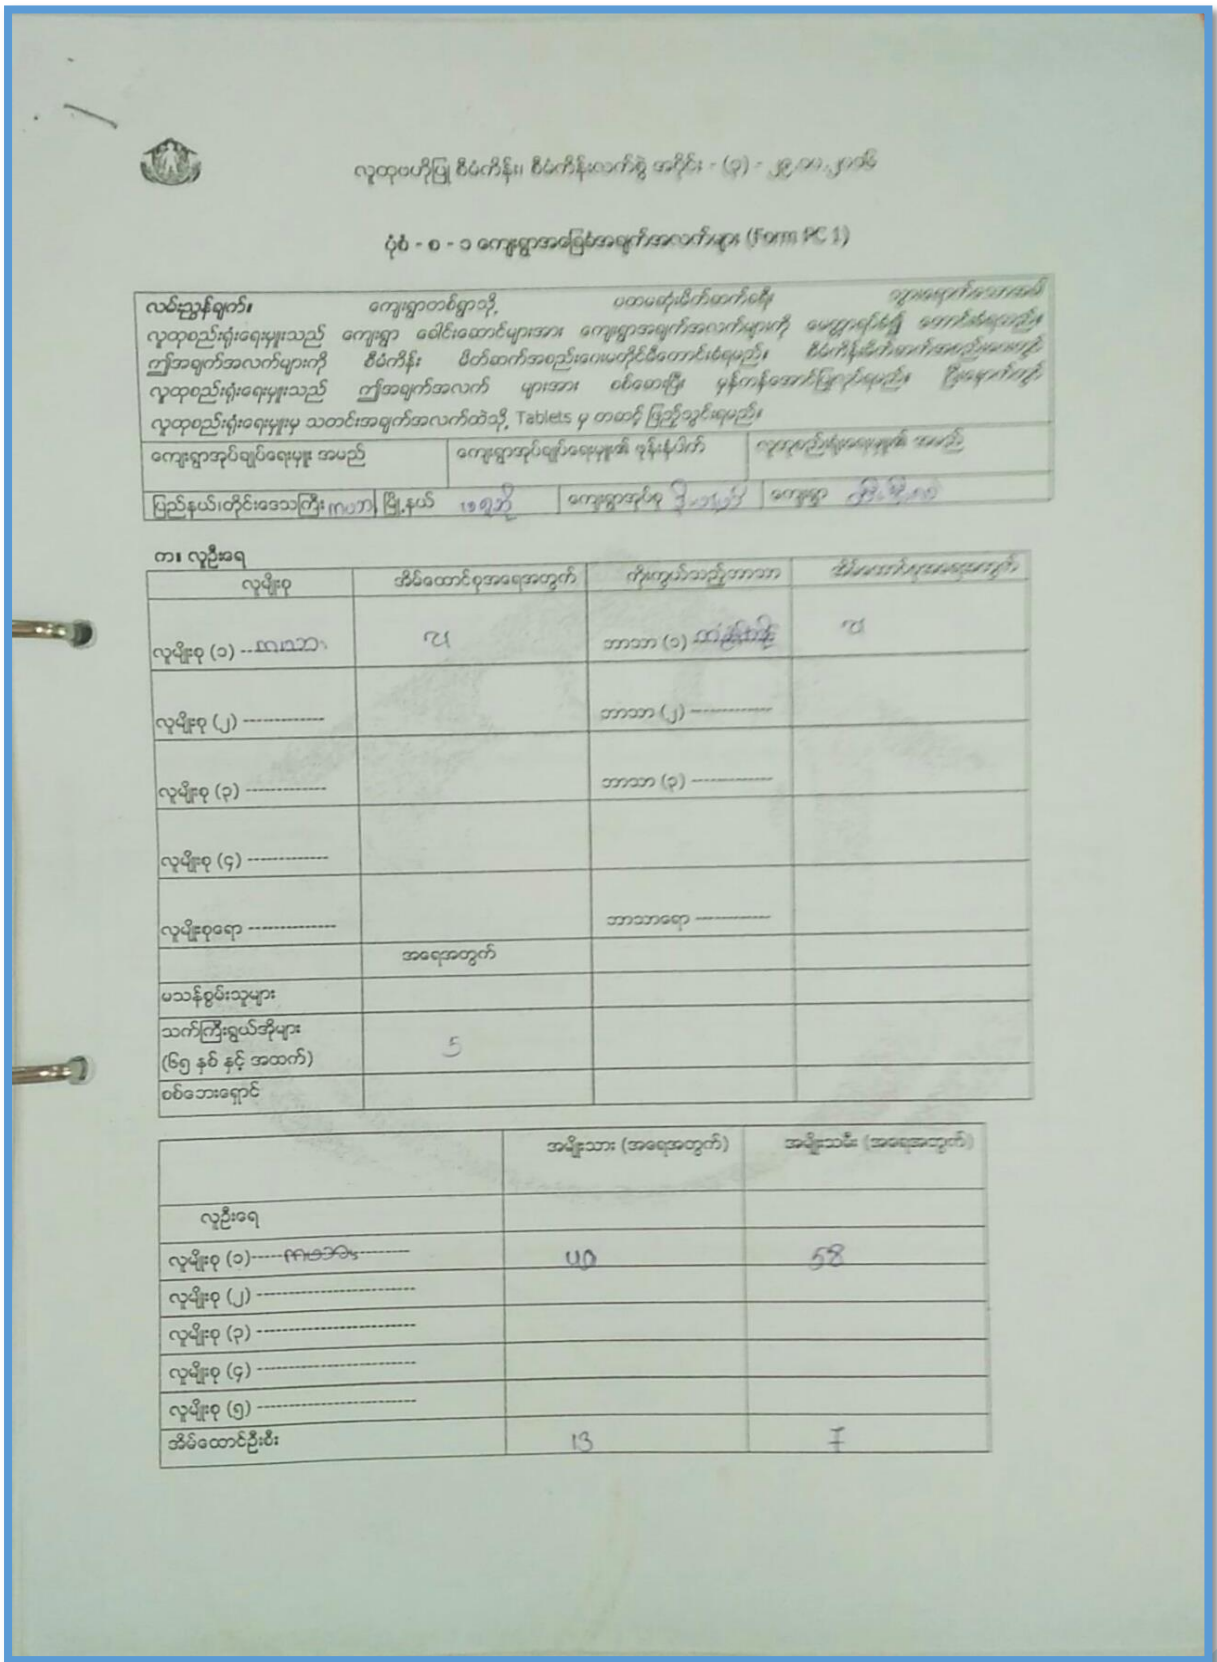 လူထုဗဟိုပြု စီမံကိန်း၊ စီမံကိန်းလက်စွဲ အပိုင်း - (၃) - ၂၉.၁၁.၂၀၁၆
ပုံစံ - စ - ၁ ကျေးရွာအခြေခံအချက်အလက်များ (Form PC 1)
လမ်းညွှန်ချက်။ ကျေးရွာတစ်ရွာသို့ ပထမဆုံးမိတ်ဆက်ခရီး သွားရောက်သောအခါ
လူထုစည်းရုံးရေးမှူးသည် ကျေးရွာ ခေါင်းဆောင်များအား ကျေးရွာအချက်အလက်များကို မေတ္တာရပ်ခံ၍ တောင်းခံရမည်။
ဤအချက်အလက်များကို စီမံကိန်း မိတ်ဆက်အစည်းအဝေးမတိုင်မီတောင်းခံရမည်။ စီမံကိန်းမိတ်ဆက်အစည်းအဝေးတွင်
လူထုစည်းရုံးရေးမှူးသည် ဤအချက်အလက် များအား စစ်ဆေးပြီး မှန်ကန်အောင်ပြုလုပ်ရမည်။ ပြီးနောက်တွင်
လူထုစည်းရုံးရေးမှူးမှ သတင်းအချက်အလက်ထဲသို့ Tablets မှ တဆင့် ဖြည့်သွင်းရမည်။
ကျေးရွာအုပ်ချုပ်ရေးမှူး အမည် ကျေးရွာအုပ်ချုပ်ရေးမှူး၏ ဖုန်းနံပါတ် လူထုစည်းရုံးရေးမှူး၏ အမည်
ပြည်နယ်၊တိုင်းဒေသကြီး ကယား မြို့နယ် ကျေးရွာအုပ်စု ကျေးရွာ
က။ လူဦးရေ
လူမျိုးစု အိမ်ထောင်စုအရေအတွက် ကိုးကွယ်သည့်ဘာသာ အိမ်ထောင်စုအရေအတွက်
လူမျိုးစု (၁) -- ကယား ဘာသာ (၁)
လူမျိုးစု (၂) -------------- ဘာသာ (၂) --------------
လူမျိုးစု (၃) -------------- ဘာသာ (၃) --------------
လူမျိုးစု (၄) --------------
လူမျိုးစုရော --------------- ဘာသာရော -------------
အရေအတွက်
မသန်စွမ်းသူများ
သက်ကြီးရွယ်အိုများ
(၆၅ နှစ် နှင့် အထက်) 5
စစ်ဘေးရှောင်
အမျိုးသား (အရေအတွက်) အမျိုးသမီး (အရေအတွက်)
လူဦးရေ
လူမျိုးစု (၁)----- ကယား --------- 58
လူမျိုးစု (၂) ---------------------------
လူမျိုးစု (၃) ---------------------------
လူမျိုးစု (၄) ---------------------------
လူမျိုးစု (၅) ---------------------------
အိမ်ထောင်ဦးစီး 13 7